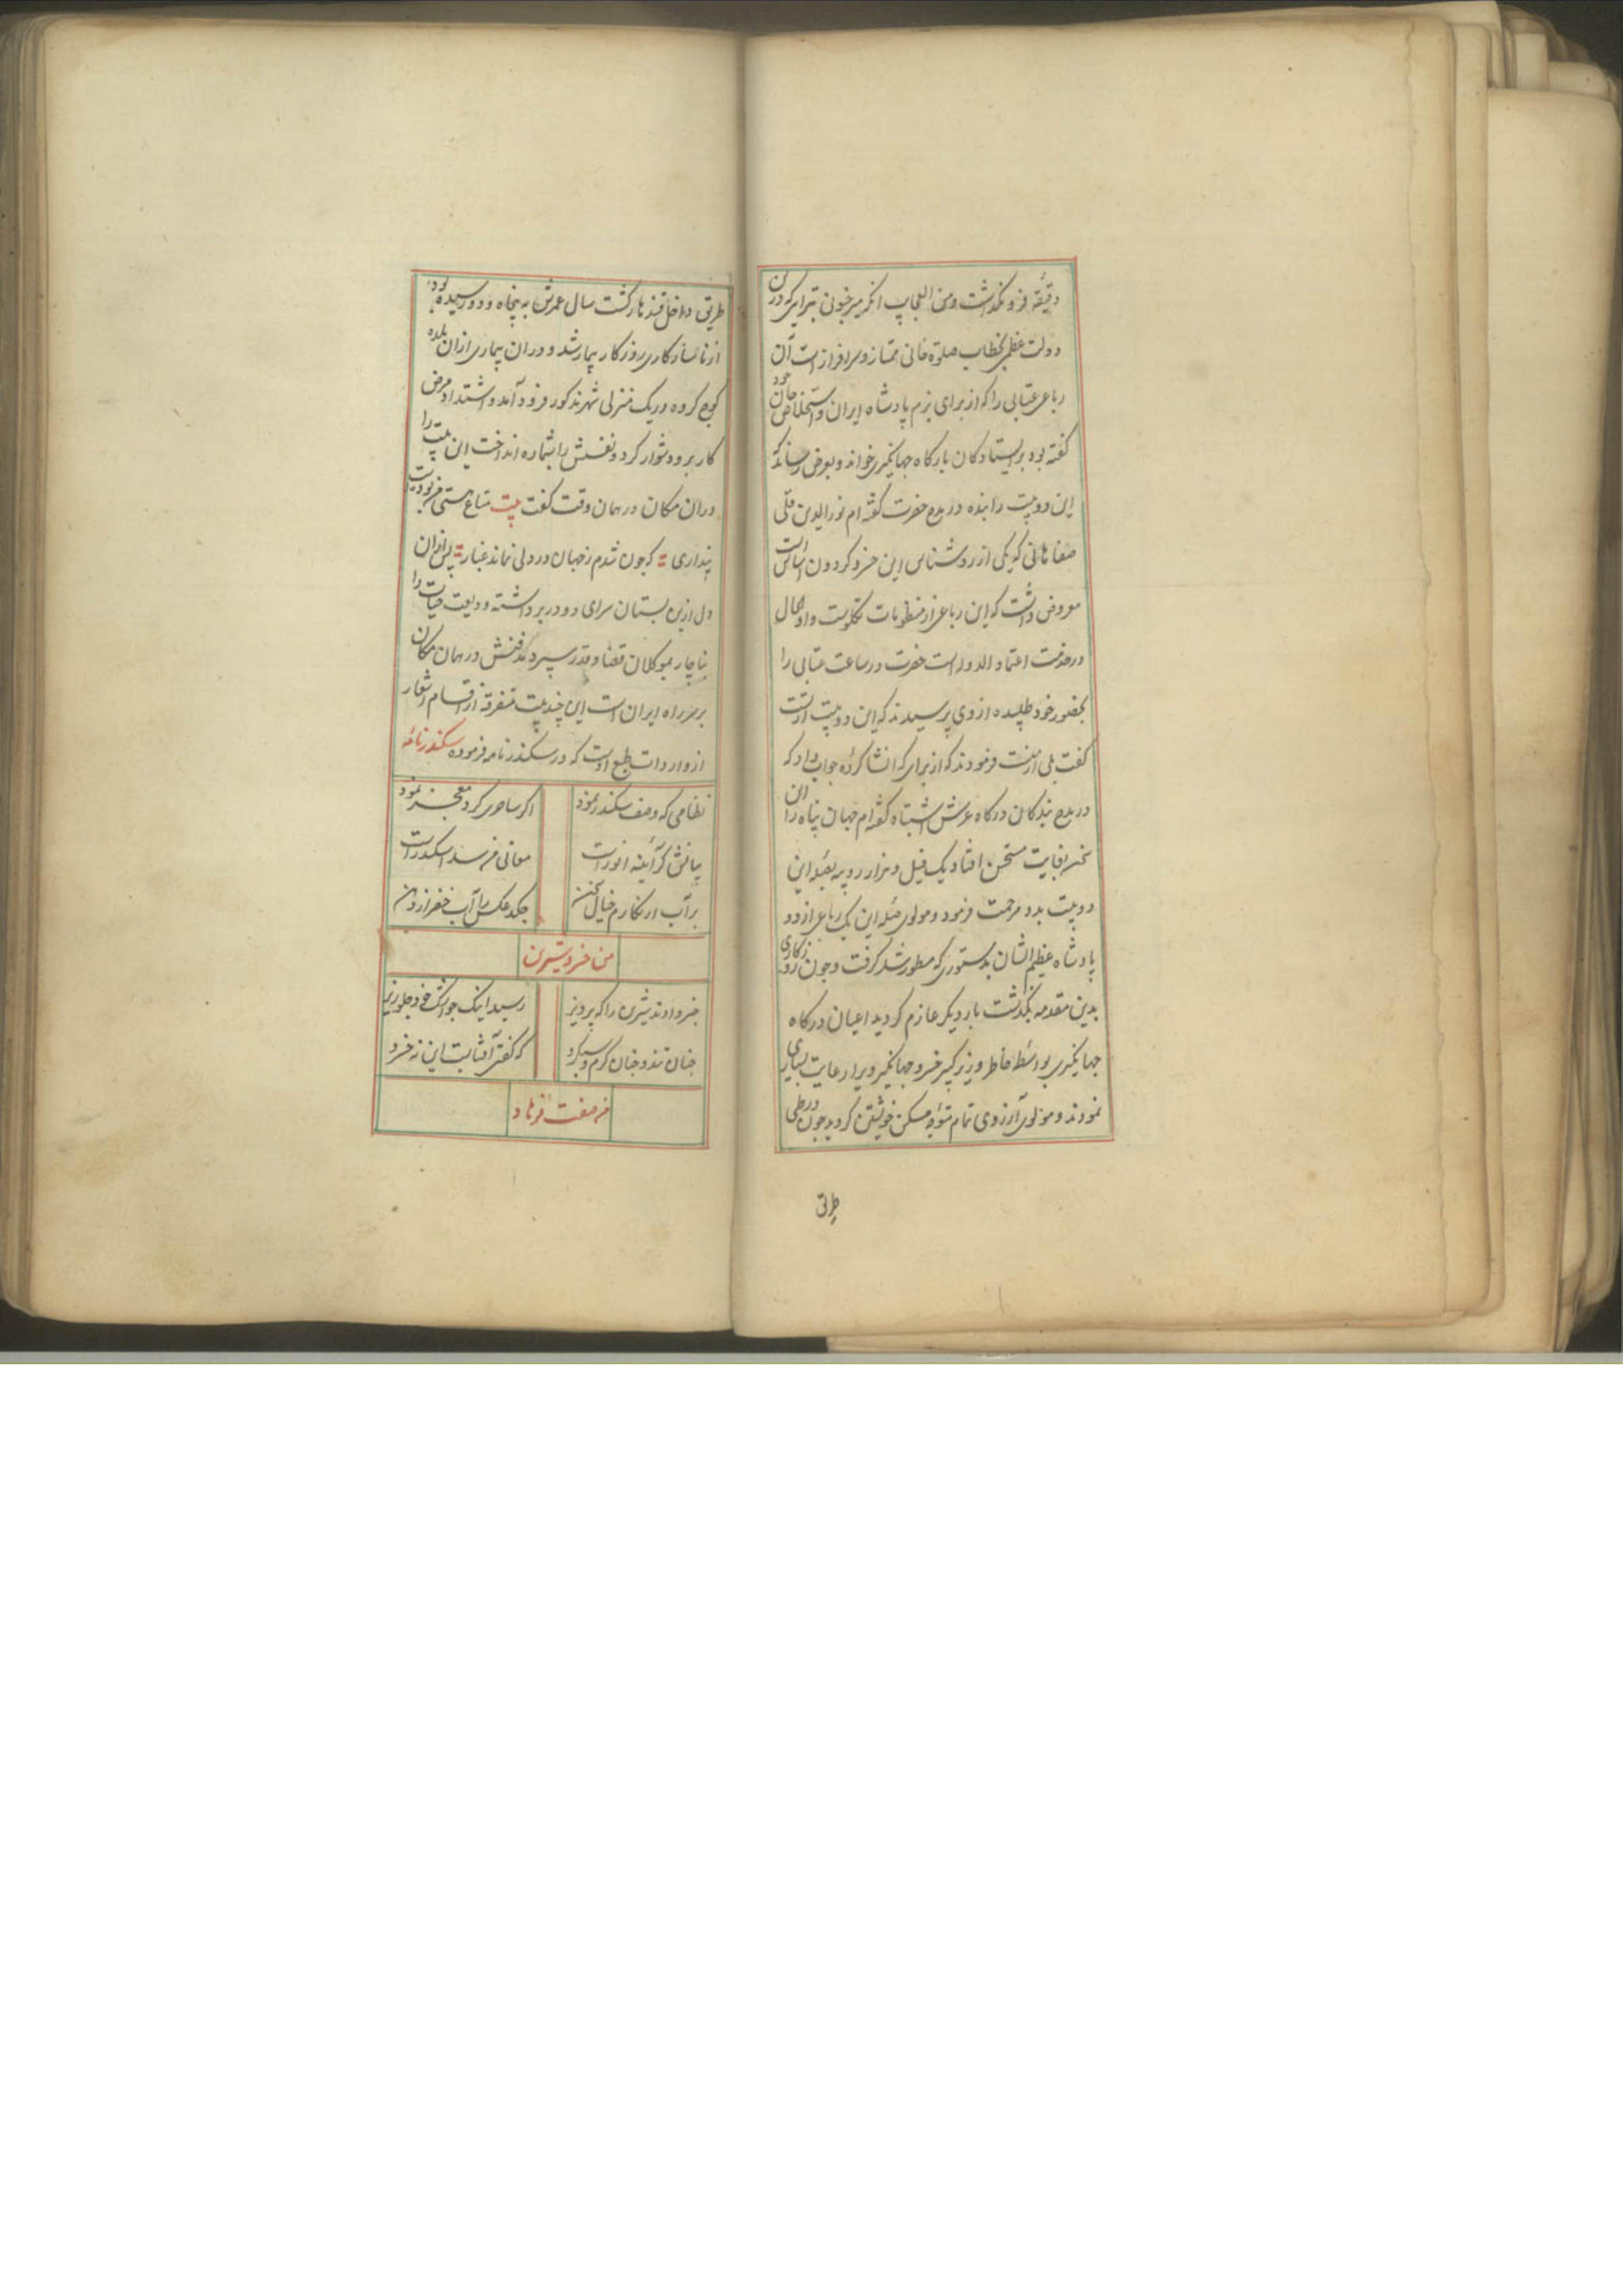 دقیقه فرو نگذاشت ومن العجایب انکه میر خونی تبرایی که درین
دولت عظمی بخطاب صلوة خانی ممتاز و سرافراز است آن
رباعی عتابی را که از برای بزم پادشاه ایران و استخلاص جان خود
گفته بود بر ایستادکان بارکاه جهانکیری خواند و بعرض رسانید که
این دو بیت را بنده در مدح حضرت گفته ام نورالدین قلی
صفاهانی که یکی از روشناس این خسرو کردون اساس است
معروض داشت که این رباعی از منظومات تکلویست و او الحال
در خدمت اعتماد الدوله است حضرت در ساعت عتابی را
بحضور خود طلبیده از وی پرسیدند که این دو بیت از تست
گفت بلی از منست فرمودند که از برای که انشا کرده جواب داد که
در مدح بندکان درکاه عرش اشتباه گفته ام جهان پناه را آن
سخن بغایت مستحسن افتاد یک فیل و هزار روپیه بصله این
دو بیت بدو مرحمت فرمود و مولوی صله این یک رباعی از دو
پادشاه عظیم الشان بدستوری که مسطور شد گرفت و چون روزکاری
بدین مقدمه بگذشت بار دیکر عازم کردید اعیان درکاه
جهانکیری بواسطه خاطر وزیر کبیر خسرو جهانکیر ویرا رعایت بسیاری
نمودند و مولوی آرزوی تمام متوجه مسکن خویشتن کردید چون در طی
طریق
طریق داخل قندهار کشت سال عمرش به پنجاه و دو رسیده بود
از ناسازکاری روزکار بیمار شد و دران بیماری ازان بلده
کوچ کرده در یک منزلی شهر مذکور فرود آمد و اشتداد مرض
کار برو دشوار کرد و نفسش را بشماره انداخت این بیت را
دران مکان در همان وقت گفت بیت متاع هستی من بود درد
پنداری = که چون شدم ز جهان در دلی نماند غبار = پس ازان
دل ازین بستان سرای دو در برداشته ودیعت حیات را
ناچار بموکلان قضا و قدر سپرد مدفنش در همان مکان
بر سر راه ایران است این چند بیت متفرقه از اقسام اشعار
از واردات طبع اوست که در سکندر نامه فرموده سکندرنامه
نظامی که وصف سکندر نمود اکر ساحری کرد معجز نمود
بیانش کز آئینه انور است معانی سکندر است
بر آب ار نکارم خیال سخن چکد عکس را آب خضر از دهن
من خسرو شیرین
خبر دادند شیرین را که پرویز رسید اینک چو اشک خود جلوریز
چنان تند و چنان گرم و سبکرو که گفتی آفتابست این نه خسرو
در صفت فرهاد